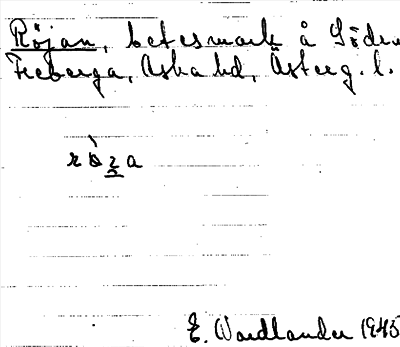 Röjan, betesmark å Söder
Freberga, Aska hd, Österg. l.
E. Wadlander 1945